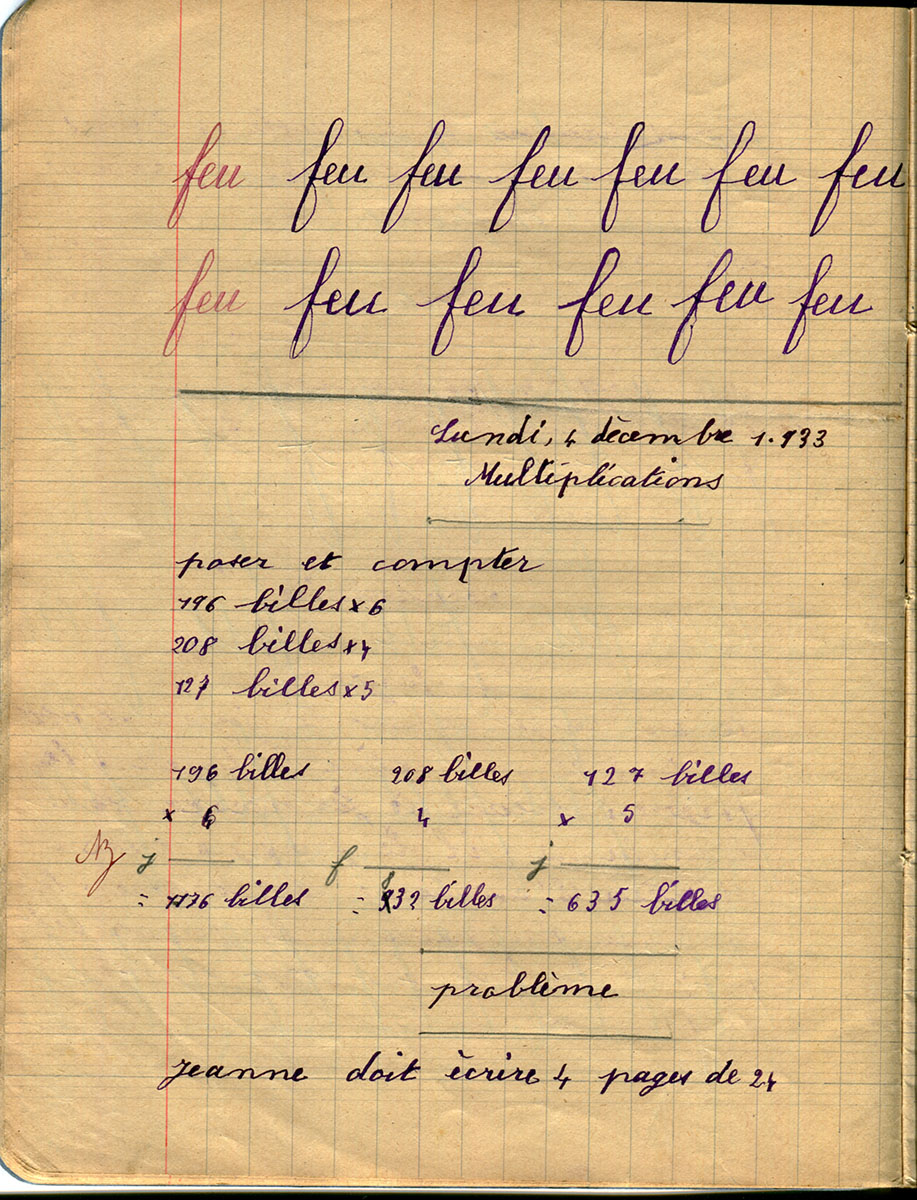 feu feu feu feu feu feu feu
feu feu feu feu feu feu
Lundi, 4 dècembre 1.933
Multiplications
poser et compter
196 billes x 6
208 billes x 4
127 billes x 5
196 billes 208 billes 127 billes
x 6 4 x 5
j f j
= 1176 billes = 832 billes = 635 billes
problème
Jeanne doit ècrire 4 pages de 24